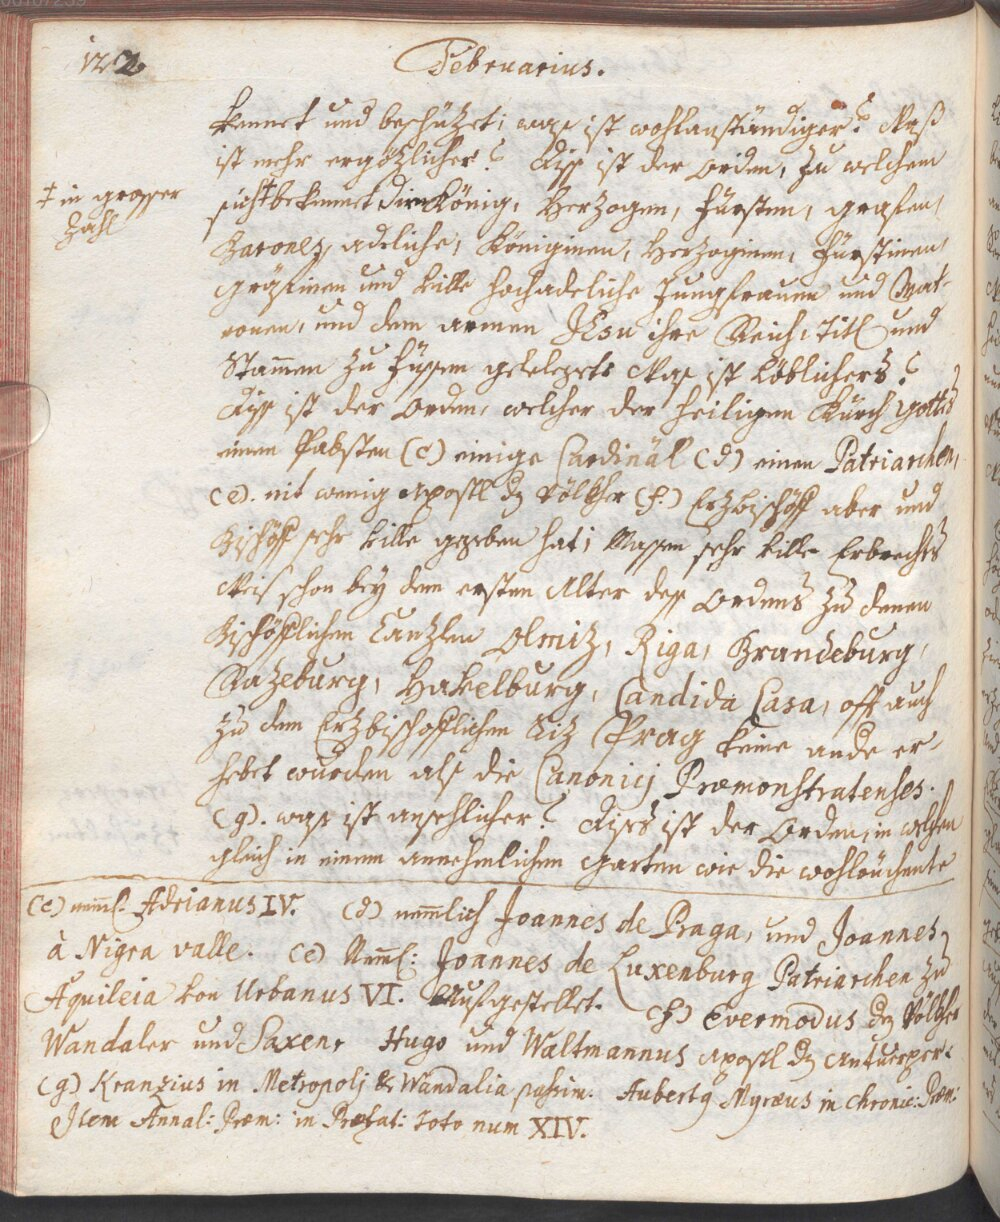 122
Februarius.
kennet und beschützet; was ist wohlanständiger? Was
ist mehr ergözlicher? Diss ist der Orden, zu welchem
‡ in grosser
Zahl
sich ‡ bekennet König, Herzogen, Fürsten, grafen,
Barones, adeliche, Königinen, Herzoginen, Fürstinen,
gräfinen und ville hochadeliche Jungfrauen und Mat-
ronen, und dem armen JEsu ihre Reich, Titl und
Stammen zu Füssen geleget. Was ist löblichers?
Diss ist der Orden, welcher der heiligen Kürch gottes
einen Pabsten (c) einige Cardinäl (d) einen Patriarchen,
(e). nit wenig Apostl der Völkher (f.) Erzbischöff aber und
Bischöff sehr ville gegeben hat; Massen sehr ville
schon bey dem ersten Alter dess Ordens zu denen
Bischöfflichen Canzlen Olmiz, Riga, Brandeburg,
Razeburg, Havelburg, Candida Casa, offt auch
zu dem Erzbischofflichen Siz Prag keine ande er-
hebet wurden als die Canonicj Præmonstratenses.
(g). was ist ansehlicher? Dises ist der Orden, in welchen
gleich in einem annehmlichen garten wie die
(c) neml. Adrianus IV. (d) nemmlich Joannes de Praga, und Joannes
à Nigra valle. (e) Neml: Joannes de Luxenburg Patriarchen zu
Aquileia von Urbanus VI. Aufgestellet. (f) Evermodus der Völkher
Wandaler und Saxen, Hugo und Waltmannus Apostl der Antuerper.
(g) Kranzius in Metropolj & Wandalia passim. Aubertus Myræus in Chronic: Præm:
Item Annal: Præm: in Præfat: toto num XIV.